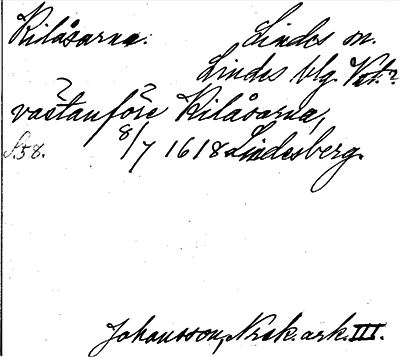 Kilåsarna. Lindes sn.
Lindes blg. Vstm?
västanföre Kilåsarna,
S. 58. 8/7 1618 Lindesberg.
Johansson, Nrsk. ark. III.